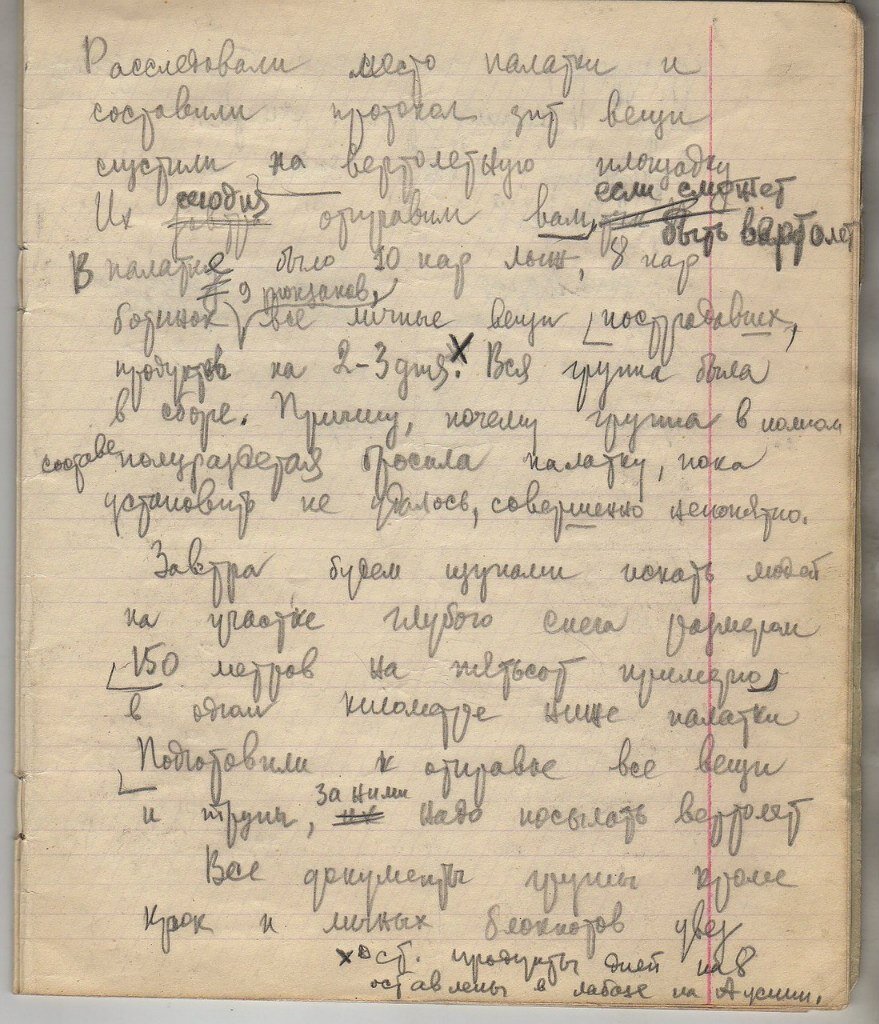 Расследовали место палатки и
составили протокол зпт вещи
спустили на вертолетную площадку
если сможет
Их завтра сегодня отправим вам, быть вертолет
В палатке было 10 пар лыж, 8 пар
9 рюкзаков,
ботинок все личные вещи пострадавших,
продуктов на 2-3 дня. х Вся группа была
в сборе. Причину, почему группа в полном
составе полураздетая бросила палатку, пока
установить не удалось, совершенно непонятно.
Завтра будем щупами искать людей
на участке глубого снега размером
150 метров на пятьсот примерно
в одном километре ниже палатки
Подготовили к отправке все вещи
за ними
и трупы, их надо посылать вертолет
Все документы группы кроме
крок и личных блокнотов увез
х ст. продукты дней на 8
оставлены в лабазе на Ауспии.